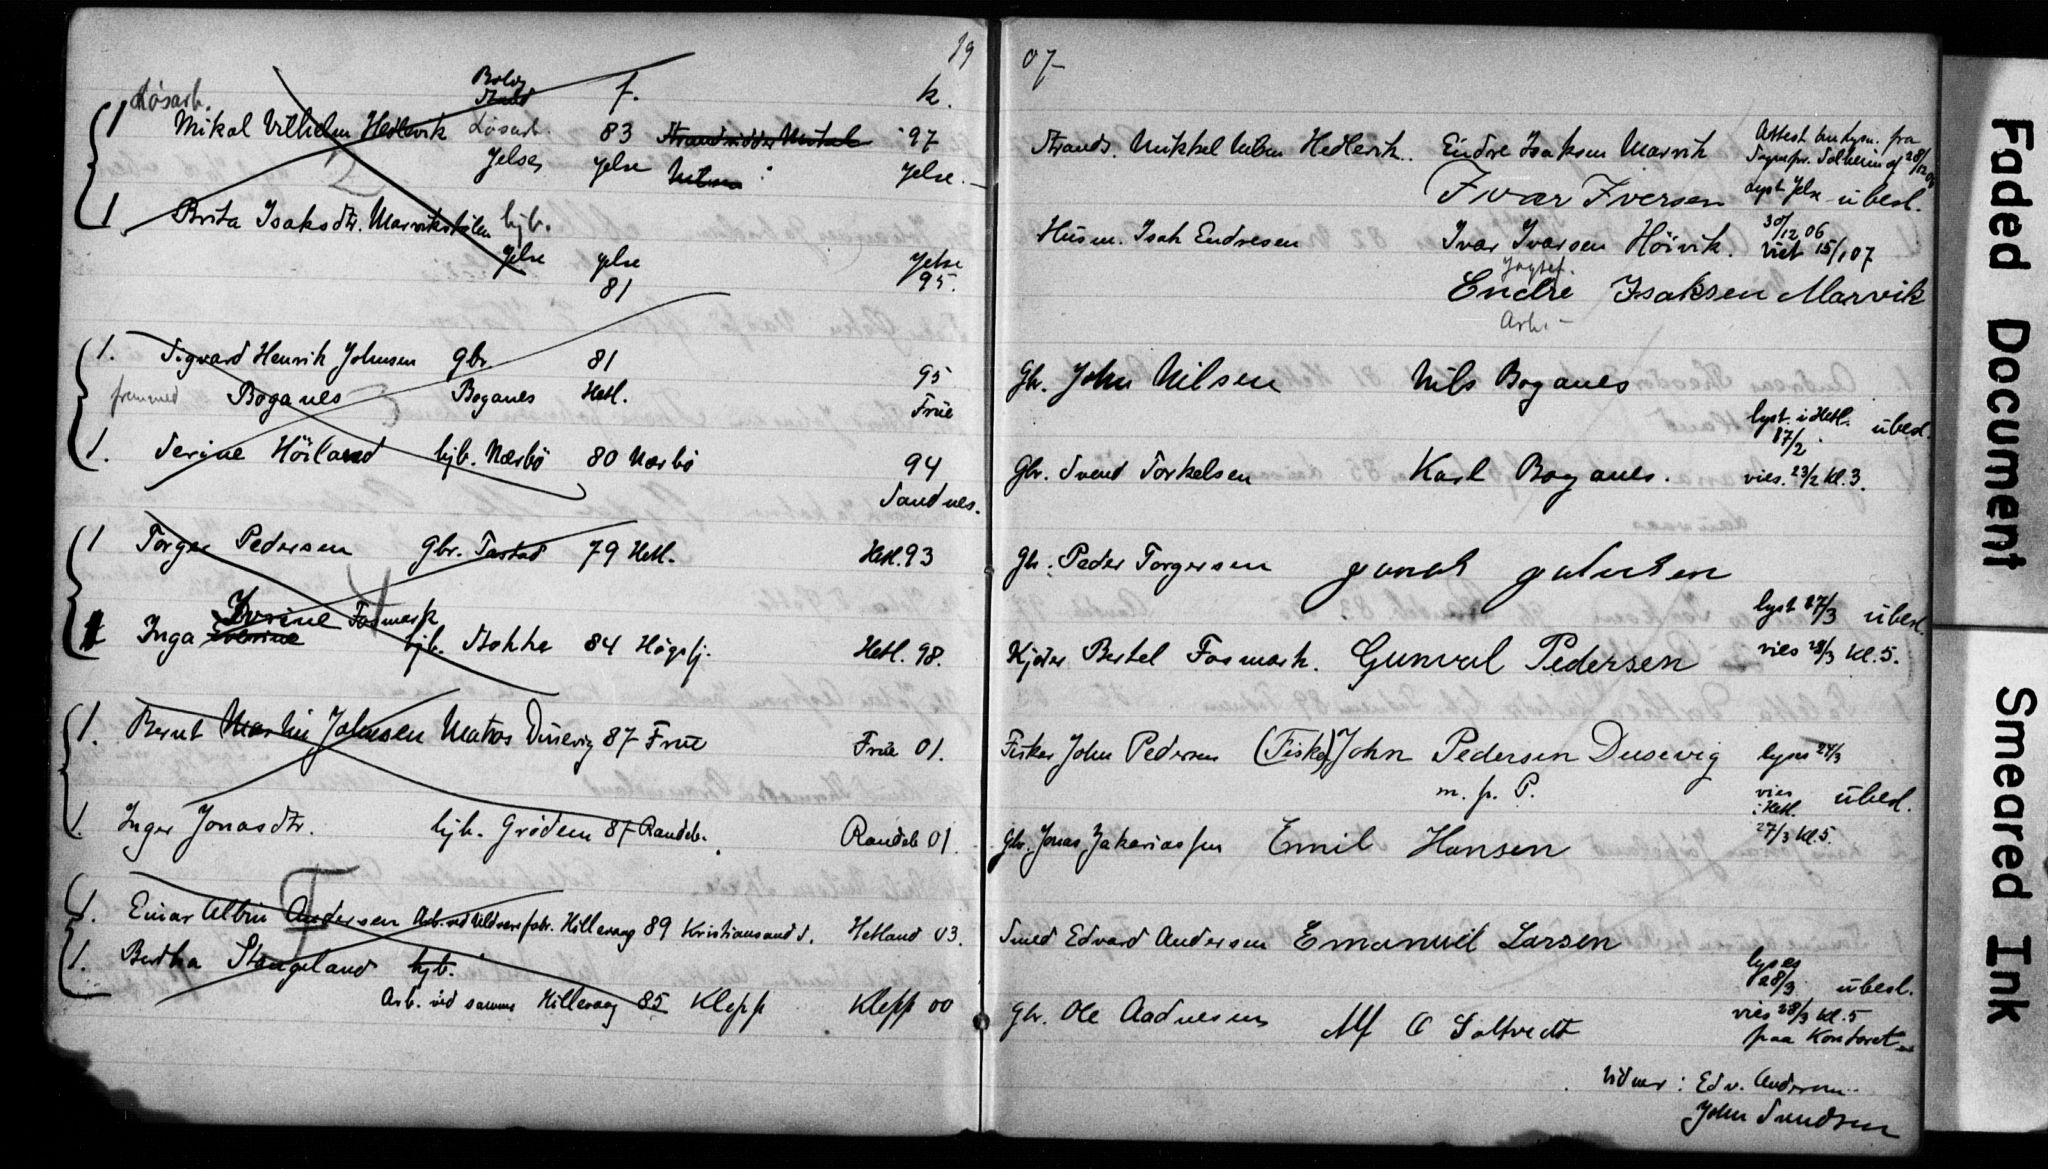 19 07
Bolig f. k.
Løsarb.
Mikal Vilhelm Hedlevik Løsarb. 83 97 Strands. Mikkel Hedlevik. Endre Isaksen Marvik Attest fra
Jelse Jelse Jelse. Solheim af 28/12 06
Ivar Iversen lyst Jelse ubesl.
1 Brita Isaksdtr. Marvikstølen hjb. Husm. Isak Endresen Ivar Ivarsen Höivik. 30/12 06 viet 15/1 07
Jelse Jelse Jelse
81 95. Endre Isaksen Marvik
Arb.
1. Sigvard Henrik Johnsen gbr 81 95 Gbr. John Nilsen Nils Boganes
fremmed Boganes Boganes Hetl. Frue lyst. i Hetl. 17/2. ubesl.
1. Serine Höiland hjb. Nærbö 80 Nærbö 94 Gbr. Svend Torkelsen Karl Boganes. vies. 23/2 kl. 3.
Sandnes.
1 Torger Pedersen Gbr. Tastad 79 Hetl. Hetl. 93 Gbr. Peder Torgersen
lyst 17/3 ubesl.
Iverine Fosmark
1 Inga Iverine hjb. Stokke 84 Högsfj. Hetl. 98. Kjører Bertel Fosmark. Gunval Pedersen vies 28/3 kl. 5.
1. Bernt Martin Johnsen Matros Dusevig 87 Frue Frue 01. Fisker John Pedersen (Fisker) John Pedersen Dusevig lyses 24/3
m. p. P. vies i Hetl. ubesl.
1. Inger Jonasdtr. hjb. Grödem 87 Randeb. Randeb 01. Gbr. Jonas Zakariassen Emil Hansen 27/3 kl. 5.
1. Einar Albin Andersen Arb. ved Uldvarefabr. Hillevaag 89 Kristianssand S. Hetland 03. Smed Edvard Andersen Emanuel Larsen
1. Bertha Stangeland hjb. lyses 28/3 ubesl.
Arb. ved samme Hillevaag 85 Klepp Klepp 00 Gbr. Ole Aadnesen Alf O Saltvedt vies 28/3 kl. 5
paa Kontoret
Vidner: Edv. Andersen
John Svendsen
Faded Document
Smeared Ink